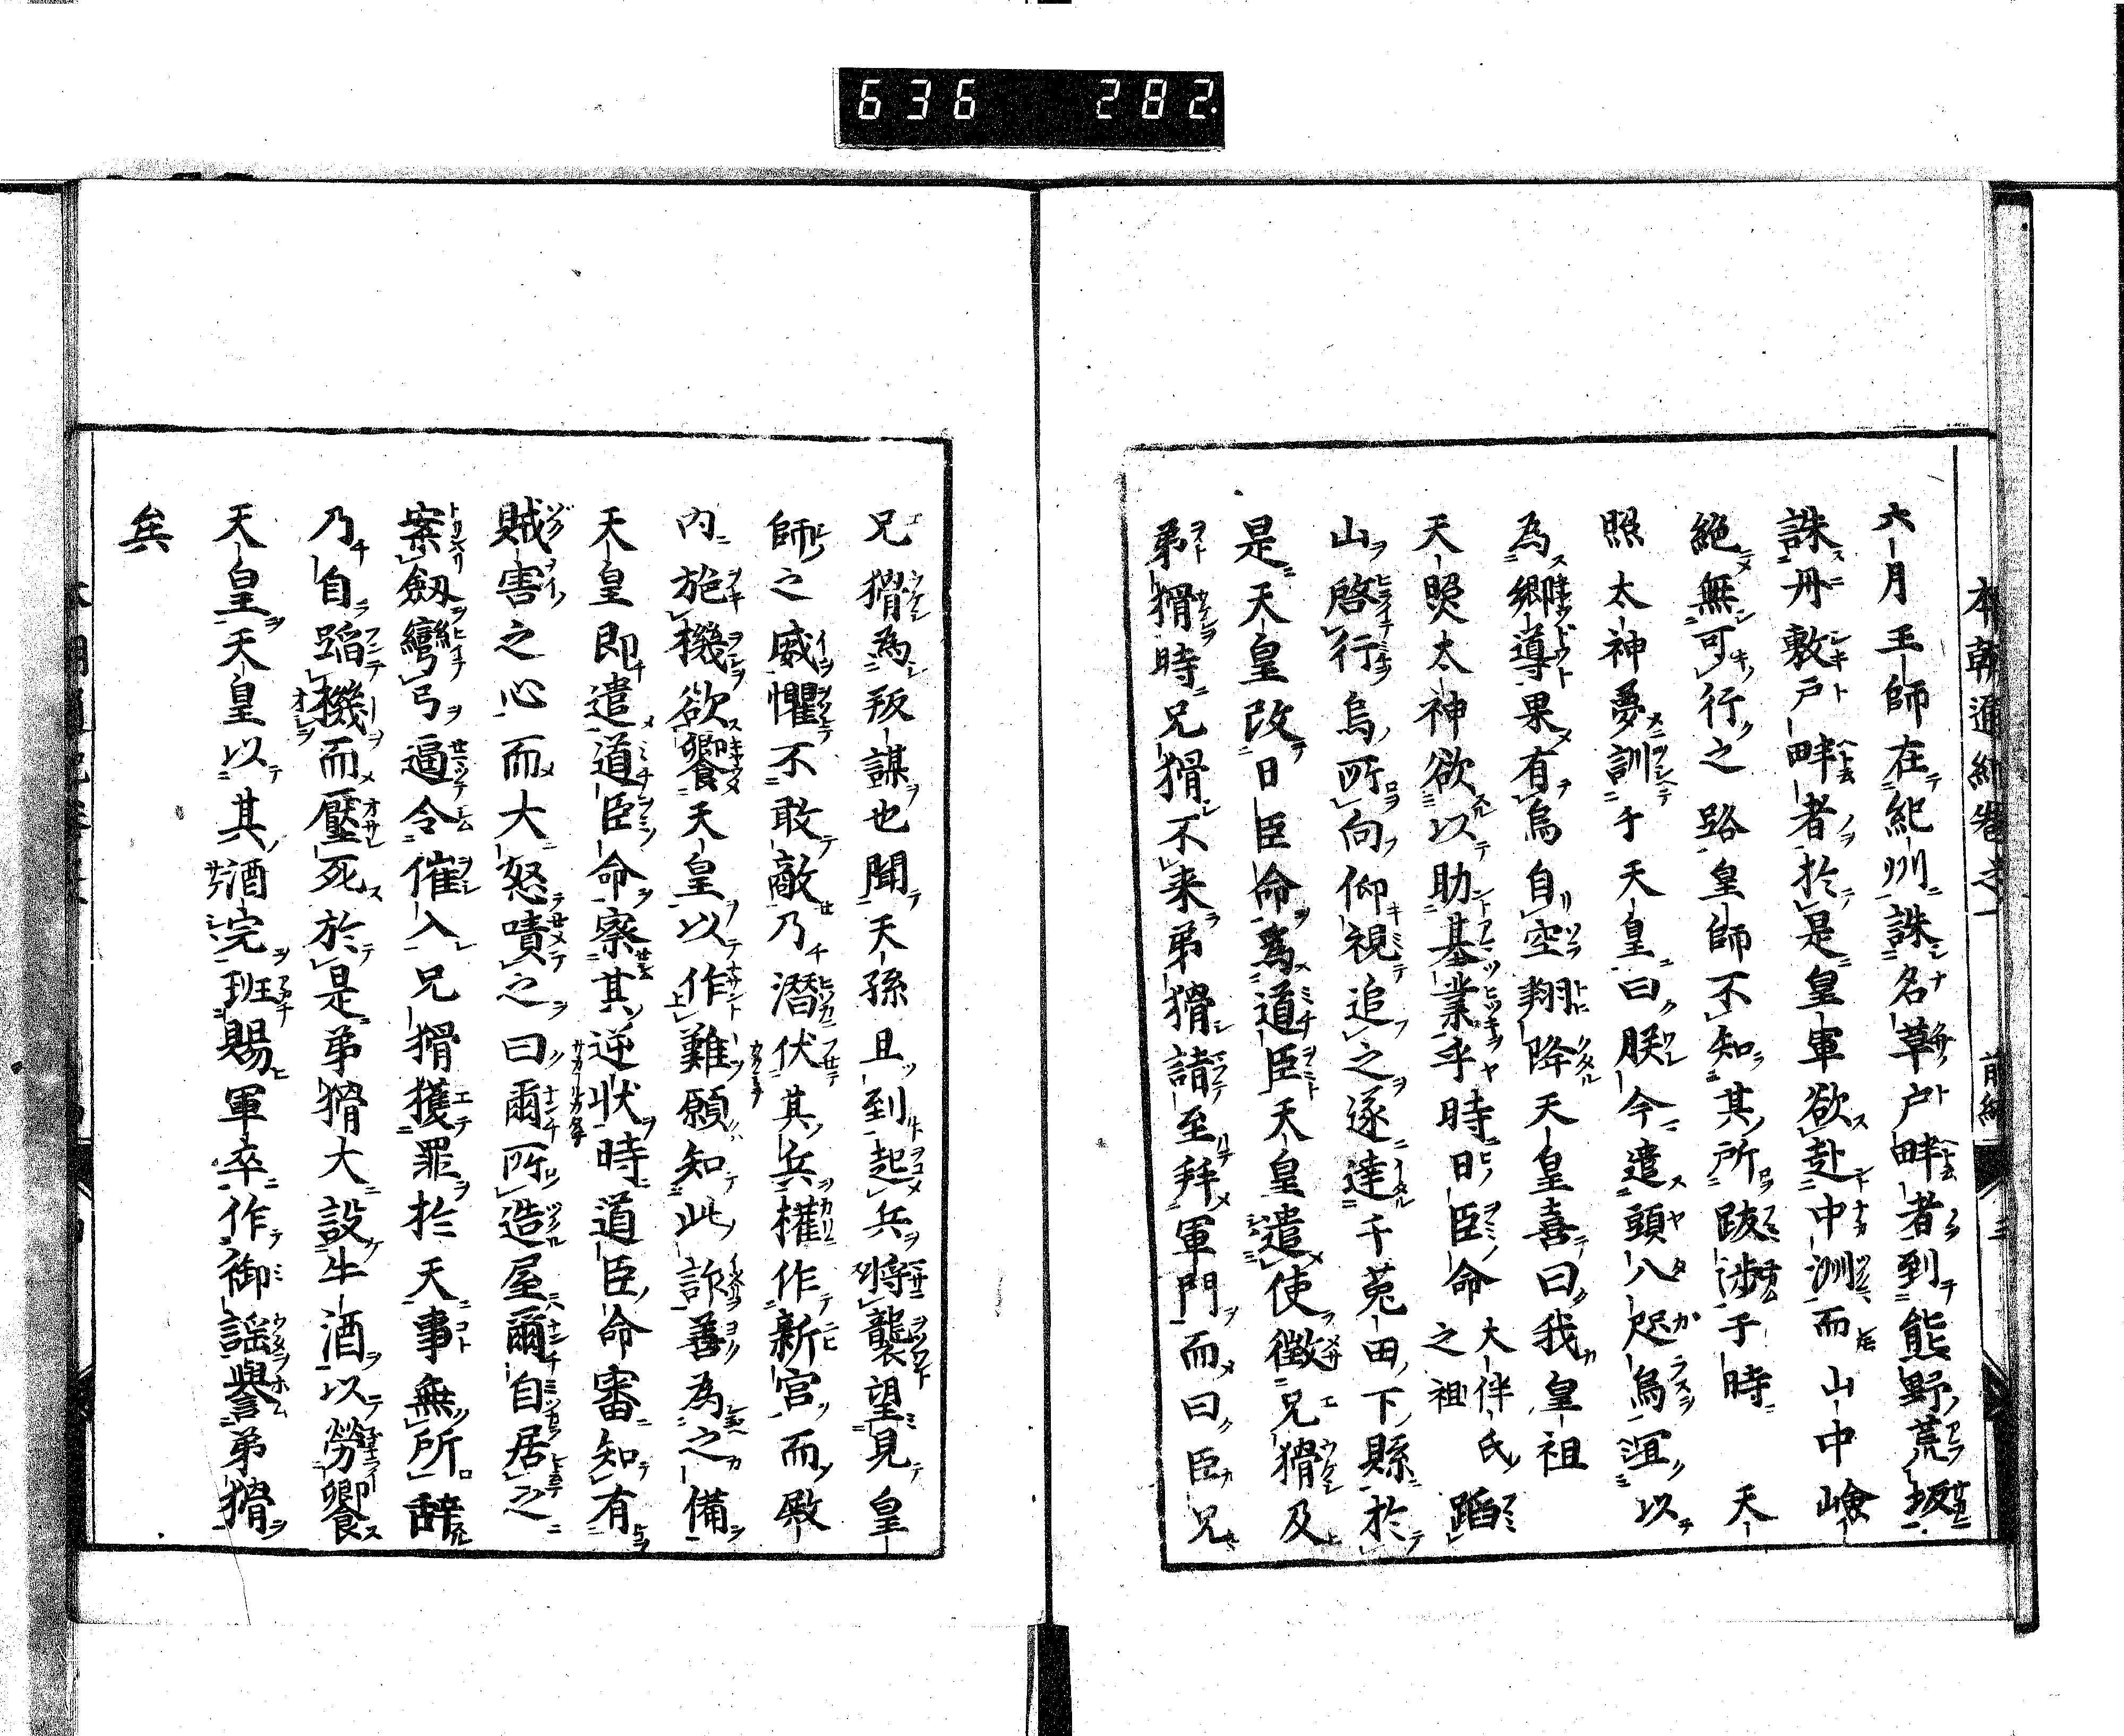 636 282.
本朝通紀卷之一 前編 三
六月王師在紀州誅名草戸畔者到熊野荒坂
誅丹敷戸畔者於是皇軍欲赴中洲而山中嶮
絶無可行之路皇師不知其所跋渉于時 天
照太神夢訓于天皇曰朕今遣頭八咫烏宜以
為郷導果有烏自空翔降天皇喜曰我皇祖
天照太神欲以助基業乎時日臣命 大伴氏之祖 蹈
山啓行烏所向仰視追之遂達于菟田下縣於
是天皇改日臣命為道臣天皇遣使徴兄猾及
弟猾時兄猾不来弟猾詣至拜軍門而曰臣兄
兄猾為叛謀也聞天孫且到起兵將襲望見皇
師之威懼不敢敵乃潜伏其兵權作新宮而殿
内施機欲饗天皇以作難願知此詐善為之備
天皇即遣道臣命察其逆状時道臣命審知有
賊害之心而大怒嘖之曰爾所造屋爾自居之
案劔彎弓逼令催入兄猾獲罪於天事無所辭
乃自蹈機而壓死於是弟猾大設牛酒以勞饗
天皇天皇以其酒宍班賜軍卒作御謡譽弟猾
矣